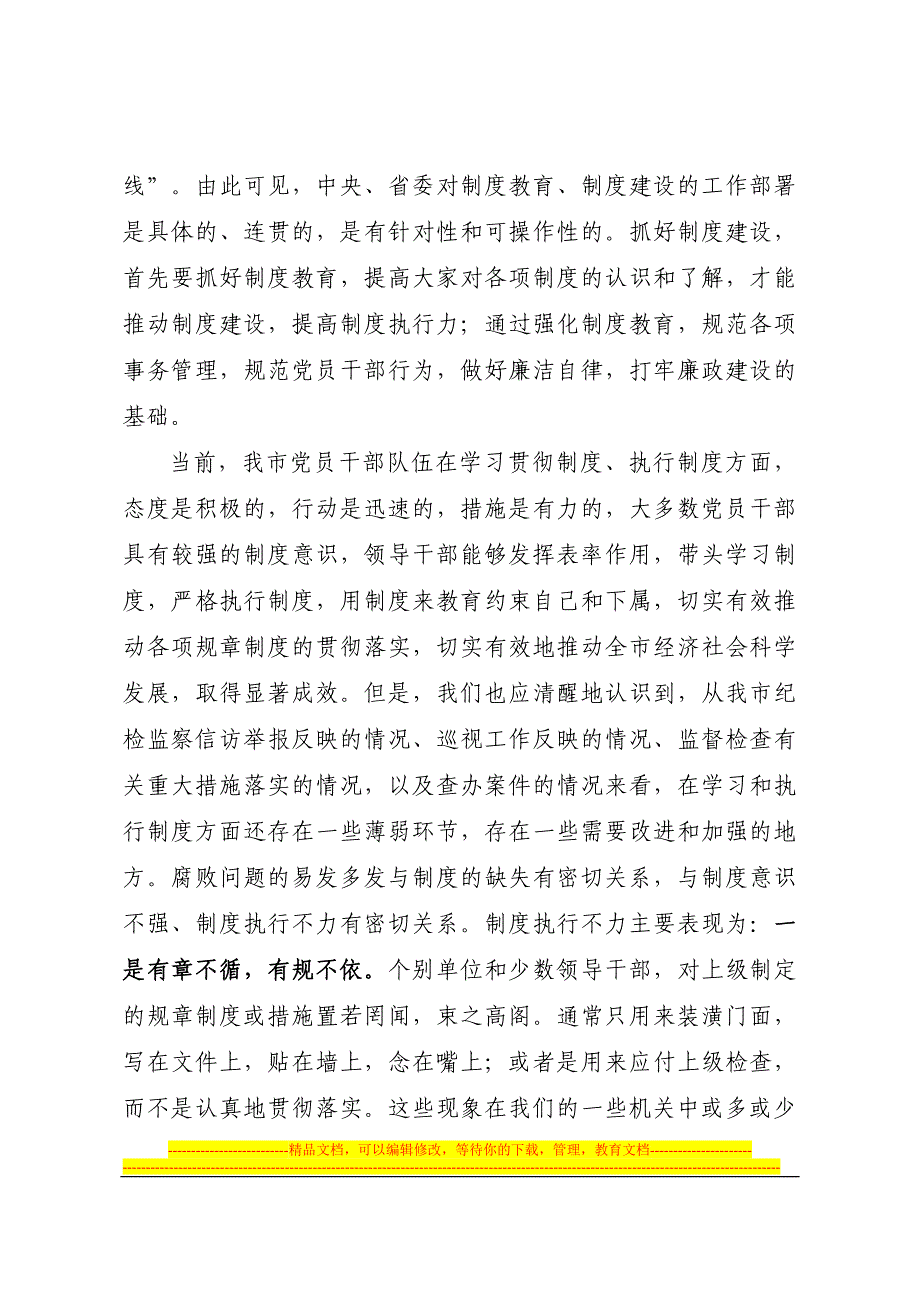 线”。由此可见，中央、省委对制度教育、制度建设的工作部署
是具体的、连贯的，是有针对性和可操作性的。抓好制度建设，
首先要抓好制度教育，提高大家对各项制度的认识和了解，才能
推动制度建设，提高制度执行力；通过强化制度教育，规范各项
事务管理，规范党员干部行为，做好廉洁自律，打牢廉政建设的
基础。
当前，我市党员干部队伍在学习贯彻制度、执行制度方面，
态度是积极的，行动是迅速的，措施是有力的，大多数党员干部
具有较强的制度意识，领导干部能够发挥表率作用，带头学习制
度，严格执行制度，用制度来教育约束自己和下属，切实有效推
动各项规章制度的贯彻落实，切实有效地推动全市经济社会科学
发展，取得显著成效。但是，我们也应清醒地认识到，从我市纪
检监察信访举报反映的情况、巡视工作反映的情况、监督检查有
关重大措施落实的情况，以及查办案件的情况来看，在学习和执
行制度方面还存在一些薄弱环节，存在一些需要改进和加强的地
方。腐败问题的易发多发与制度的缺失有密切关系，与制度意识
不强、制度执行不力有密切关系。制度执行不力主要表现为：一
是有章不循，有规不依。个别单位和少数领导干部，对上级制定
的规章制度或措施置若罔闻，束之高阁。通常只用来装潢门面，
写在文件上，贴在墙上，念在嘴上；或者是用来应付上级检查，
而不是认真地贯彻落实。这些现象在我们的一些机关中或多或少
--------------------------精品文档，可以编辑修改，等待你的下载，管理，教育文档----------------------